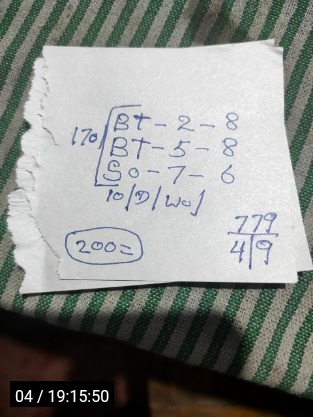 BT - 2 - 8
170 BT - 5 - 8
So - 7 - 6
10/D/Wo]
779
4|9
200=
04 / 19:15:50